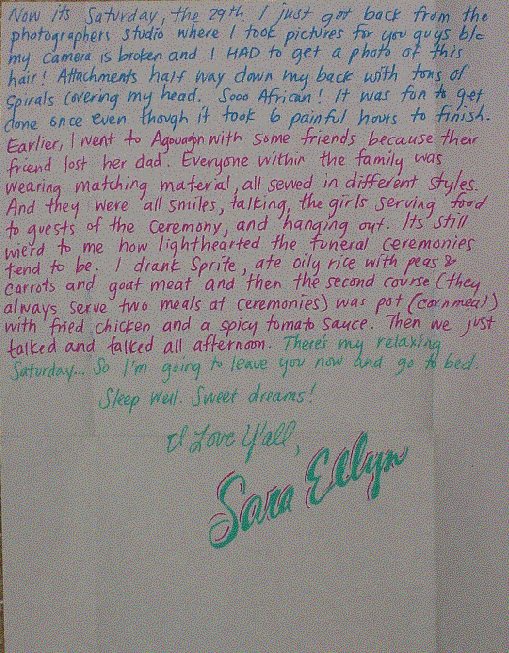 Now its Saturday, the 29th. I just got back from the
photographers studio where I took pictures for you guys b/c
my camera is broken and I HAD to get a photo of this
hair! Attachments half way down my back with tons of
spirals covering my head. Sooo African! It was fun to get
done once even though it took 6 painful hours to finish.
Earlier, I went to with some friends because their
friend lost her dad. Everyone within the family was
wearing matching material, all sewed in different styles.
And they were all smiles, talking, the girls serving food
to guests of the ceremony, and hanging out. Its still
wierd to me how lighthearted the funeral ceremonies
tend to be. I drank Sprite, ate oily rice with peas &
carrots and goat meat and then the second course (they
always serve two meals at ceremonies) was pot (cornmeal)
with fried chicken and a spicy tomato sauce. Then we just
talked and talked all afternoon. There's my relaxing
Saturday... So I'm going to leave you now and go to bed.
Sleep well. Sweet dreams!
I Love Y'all,
Sara Ellyn